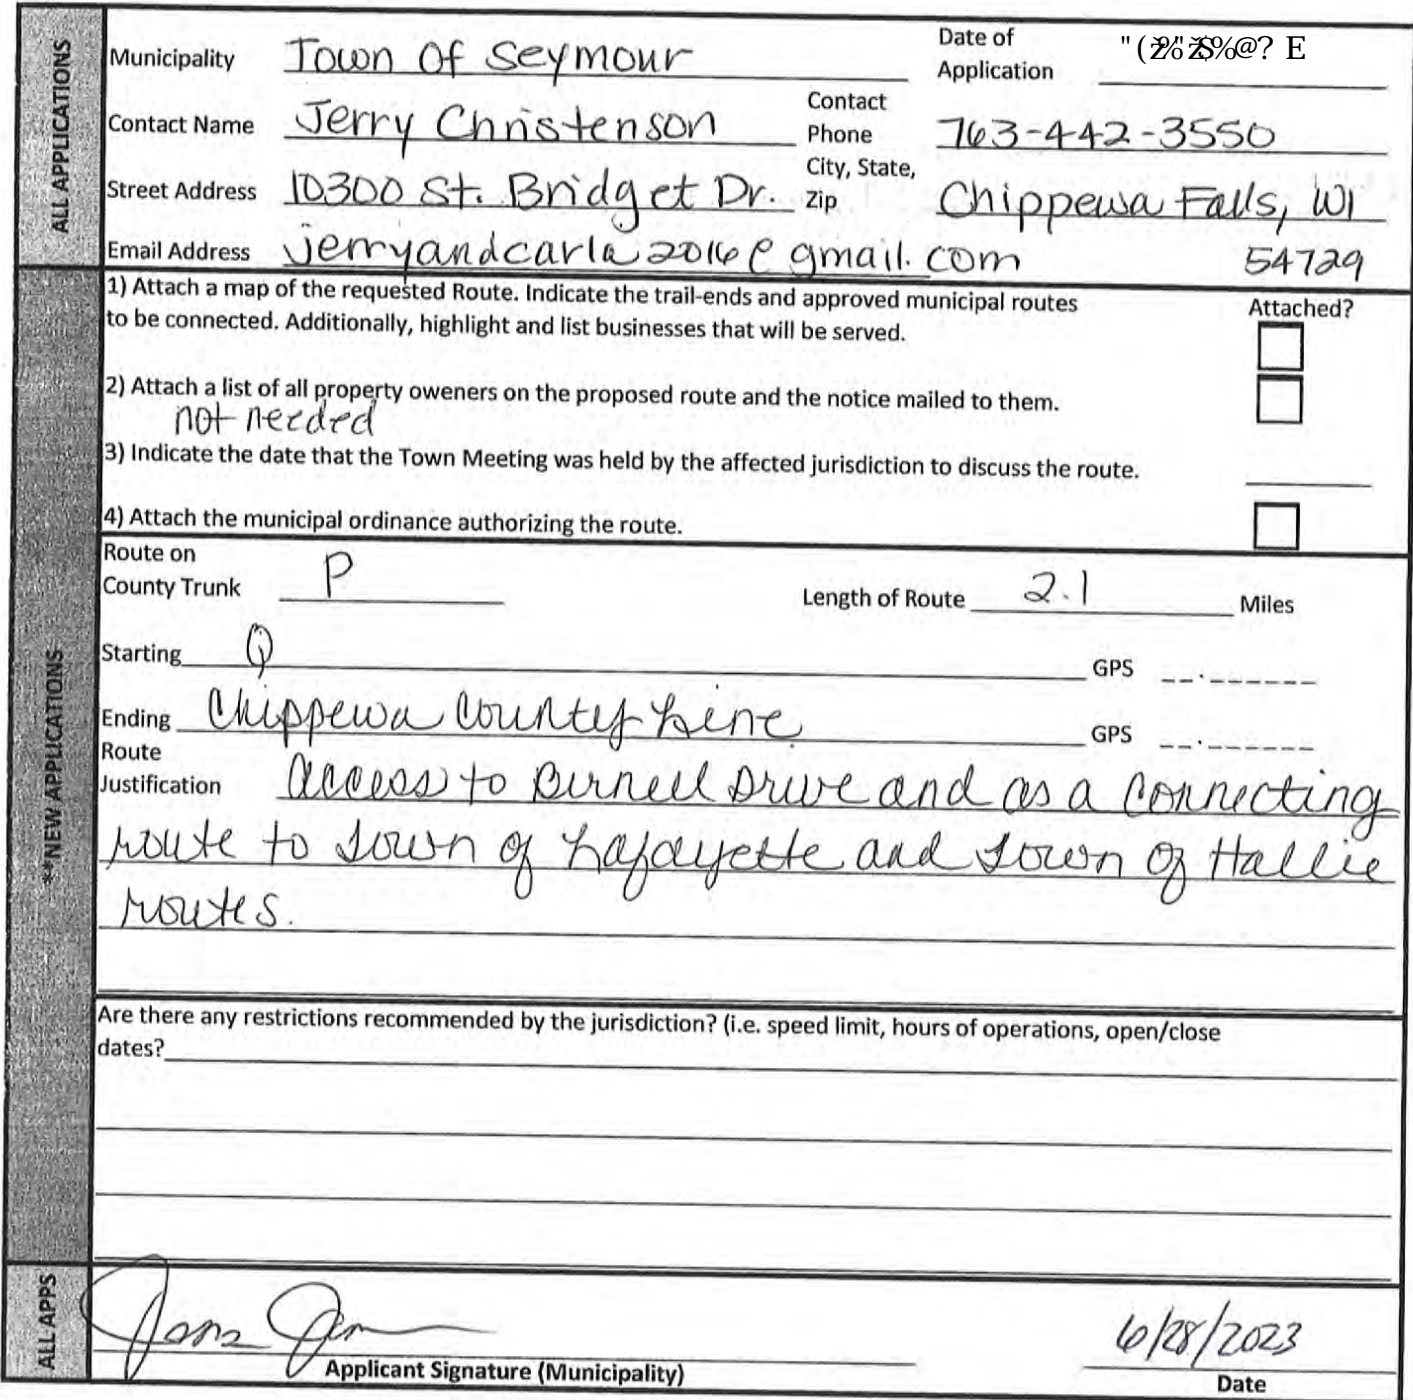 ALL APPLICATIONS
Municipality Town Of Seymour Date of Application
Contact Name Jerry Christenson Contact Phone 763-442-3550
Street Address 10300 St. Bridget Dr. City, State, Zip Chippewa Falls, WI
Email Address jerryandcarla2016@gmail.com 54729
**NEW APPLICATIONS
1) Attach a map of the requested Route. Indicate the trail-ends and approved municipal routes Attached?
to be connected. Additionally, highlight and list businesses that will be served.
2) Attach a list of all property oweners on the proposed route and the notice mailed to them.
not needed
3) Indicate the date that the Town Meeting was held by the affected jurisdiction to discuss the route.
4) Attach the municipal ordinance authorizing the route.
Route on
County Trunk P Length of Route 2.1 Miles
Starting Q GPS
Ending Chippewa County Line GPS
Route
Justification access to Burnell Drive and as a connecting
route to Town of Lafayette and Town of Hallie
routes.
Are there any restrictions recommended by the jurisdiction? (i.e. speed limit, hours of operations, open/close
dates?
ALL APPS
6/28/2023
Applicant Signature (Municipality) Date